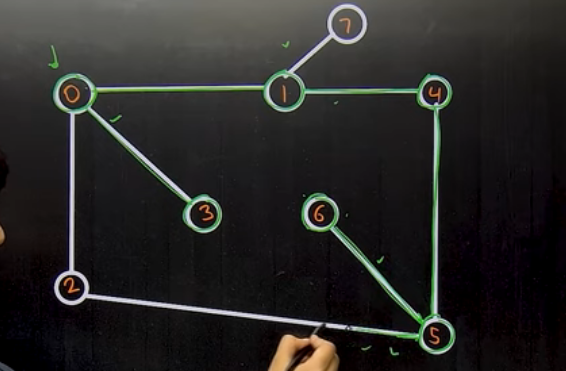 7
0
1
4
3
6
2
5